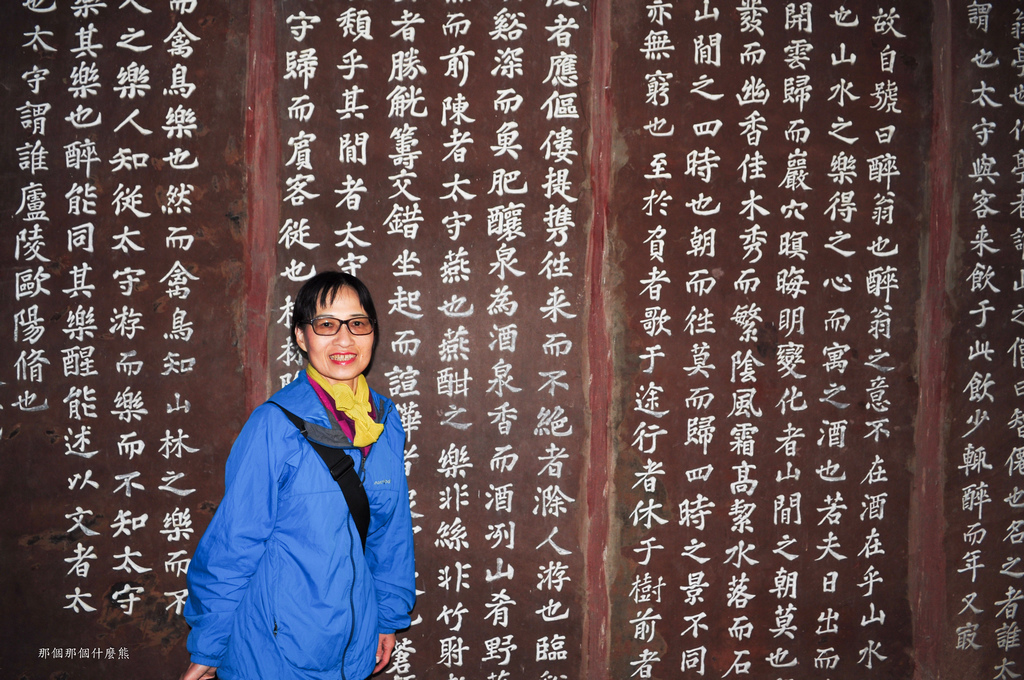 翁亭也作亭者誰山之僧曰智僊也名之者誰太
謂也太守與客来飲于此飲少輒醉而年又寂
故自號曰醉翁也醉翁之意不在酒在乎山水
也山水之樂得之心而寓之酒也若夫日出而
開雲歸而巖穴暝晦明變化者山間之朝莫也
發而幽香佳木秀而繁陰風霜高絜水落而石
山間之四時也朝而往莫而歸四時之景不同
亦無窮也至於負者歌于途行者休于樹前者
應傴僂提携往来而不絕者滁人游也臨
谿深而魚肥釀泉為酒泉香而酒冽山肴野
而前陳者太守燕也燕酣之樂非絲非竹射
者勝觥籌交錯坐起而諠譁者
頽乎其間者太守
守歸而賓客從也
而禽鳥樂也然而禽鳥知山林之樂而不
人之樂人知從太守游而樂而不知太守
其樂也醉能同其樂醒能述以文者太
也太守謂誰廬陵歐陽脩也
那個那個什麼熊